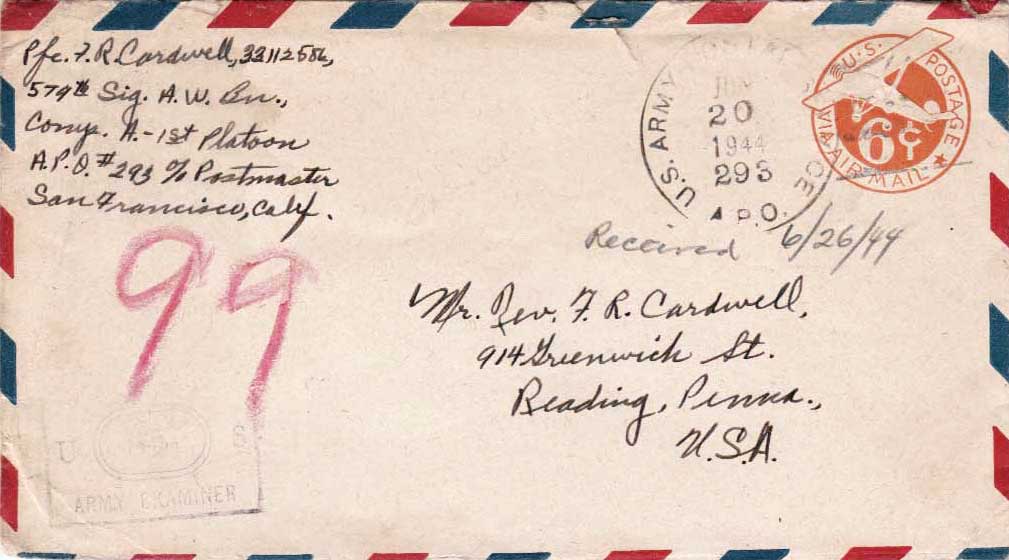 Pfc. F. R. Cardwell, 33112586,
579th Sig. A. W. Bn.,
Comp. A. - 1st Platoon
A.P.O. #293 % Postmaster
San Francisco, Calif.
U.S. ARMY
JUN
20
1944
293
A.P.O.
U.S. POSTAGE
6¢
VIA AIR MAIL
Received 6/26/44
99
Mr. Rev. F. R. Cardwell,
914 Greenwich St.
Reading, Penna.,
U.S.A.
U S
ARMY EXAMINER